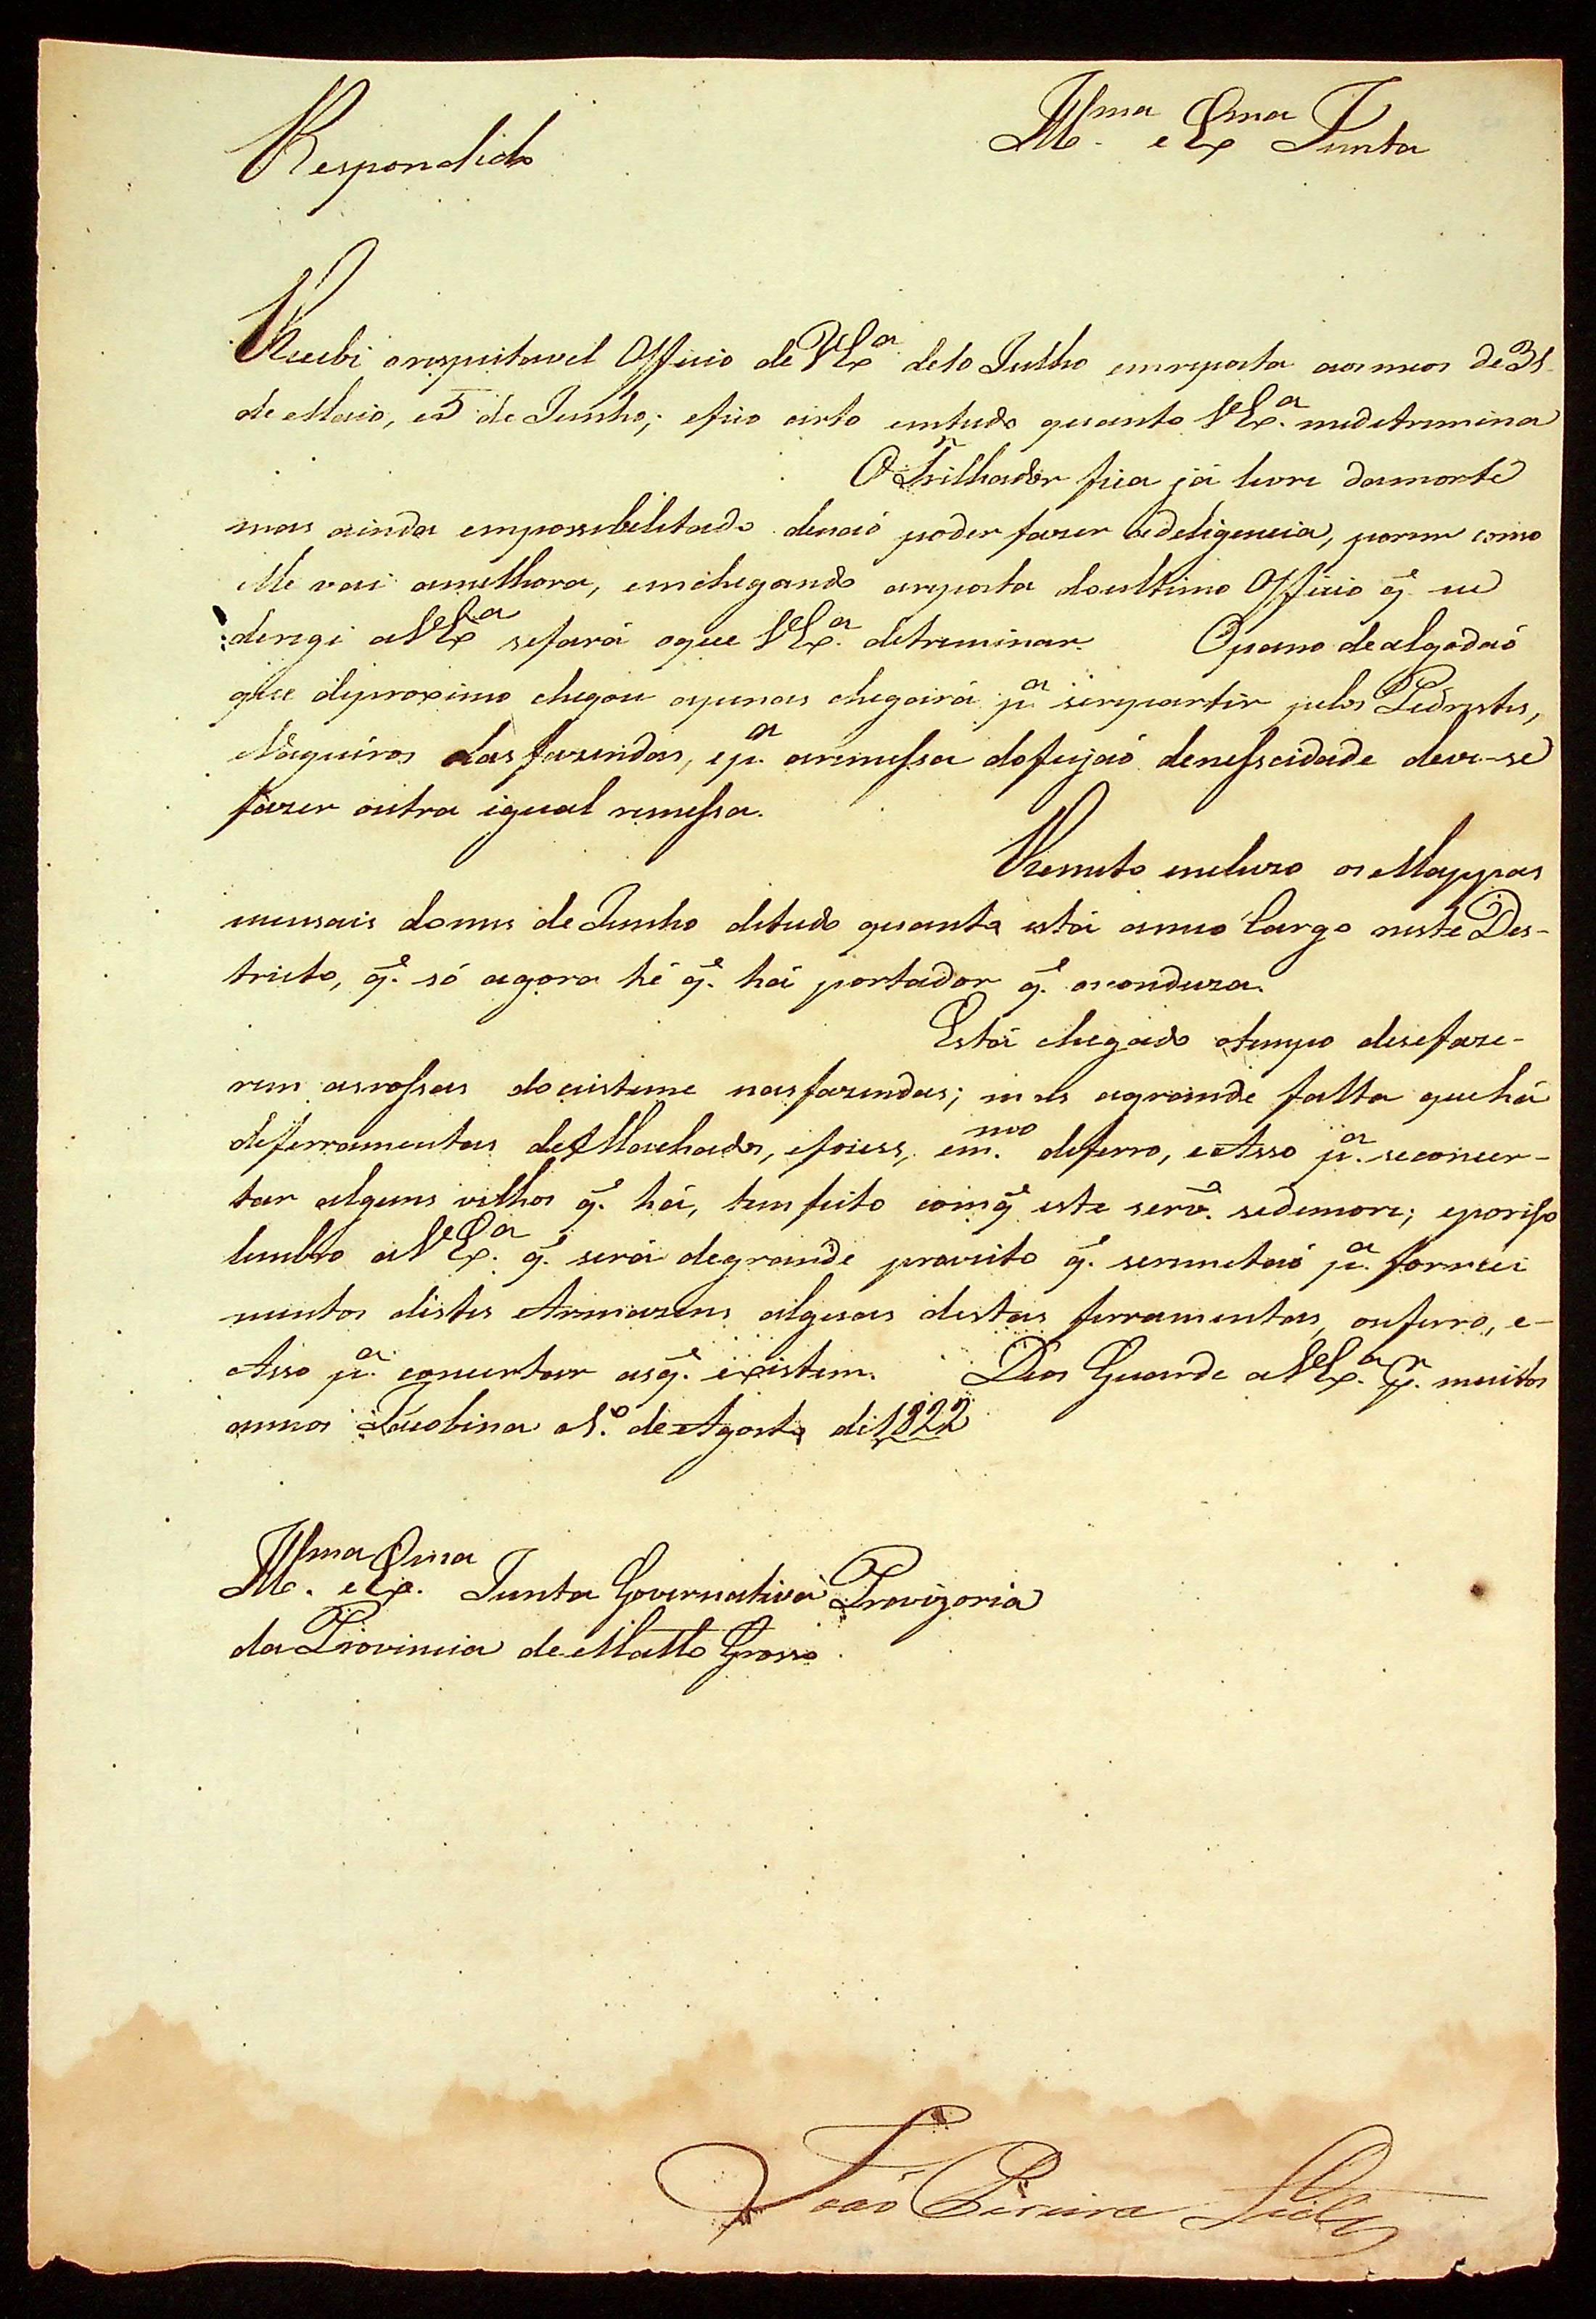 Respondido
Ill.ma e Ex.ma Junta
Recebi orespeitavel Officio de VEx.a de10 Julho emresposta aos meos de31
de Maio, e5 de Junho; efico certo emtudo quanto VEx.a medetremina
O Trilhador fica já livre damorte
mas ainda empossibilitado denaõ poder fazer adeligencia, porem como
elle vai amelhora, emchegando aresposta doultimo Officio q.e eu
deregi aVEx.a sefará oque VEx.a detreminar. Opano dealgodaõ
que deproximo chegou apenas chegará p.a serepartir pelos Pedrestes,
Vaqueiros dasfazendas, ep.a aremessa dofeijaõ denesscidade deve-se
fazer outra igual remessa.
Remeto emcluzo os Mappas
mensais domes de Junho detudo quanto está ameo Cargo neste Des-
tricto, q.e só agora hé q.e há portador q.e osconduza.
Está chegado otempo desefaze-
rem asrossas docusteme nasfazendas; mas agrande falta quehá
deferramentas deMachados, efoises, em.mo deferro, eAsso p.a seconcer-
tar alguns velhos q.e há, tem feito comq.e este serv.o sedemore; eporisso
lembro aVEx.a q.e será degrande proveito q.e seremetaõ p.a forneci
mentos destes Armazens algu͂as destas ferramentas, ouferro, e-
Asso p.a concertar asq.e existem. Deos Guarde aVEx.a p.r muitos
annos Jacobina a1.o deAgosto de1822
Ill.ma e Ex.ma Junta Governativa Provizoria
da Provincia de Matto Grosso
Joaõ Pereira Leite